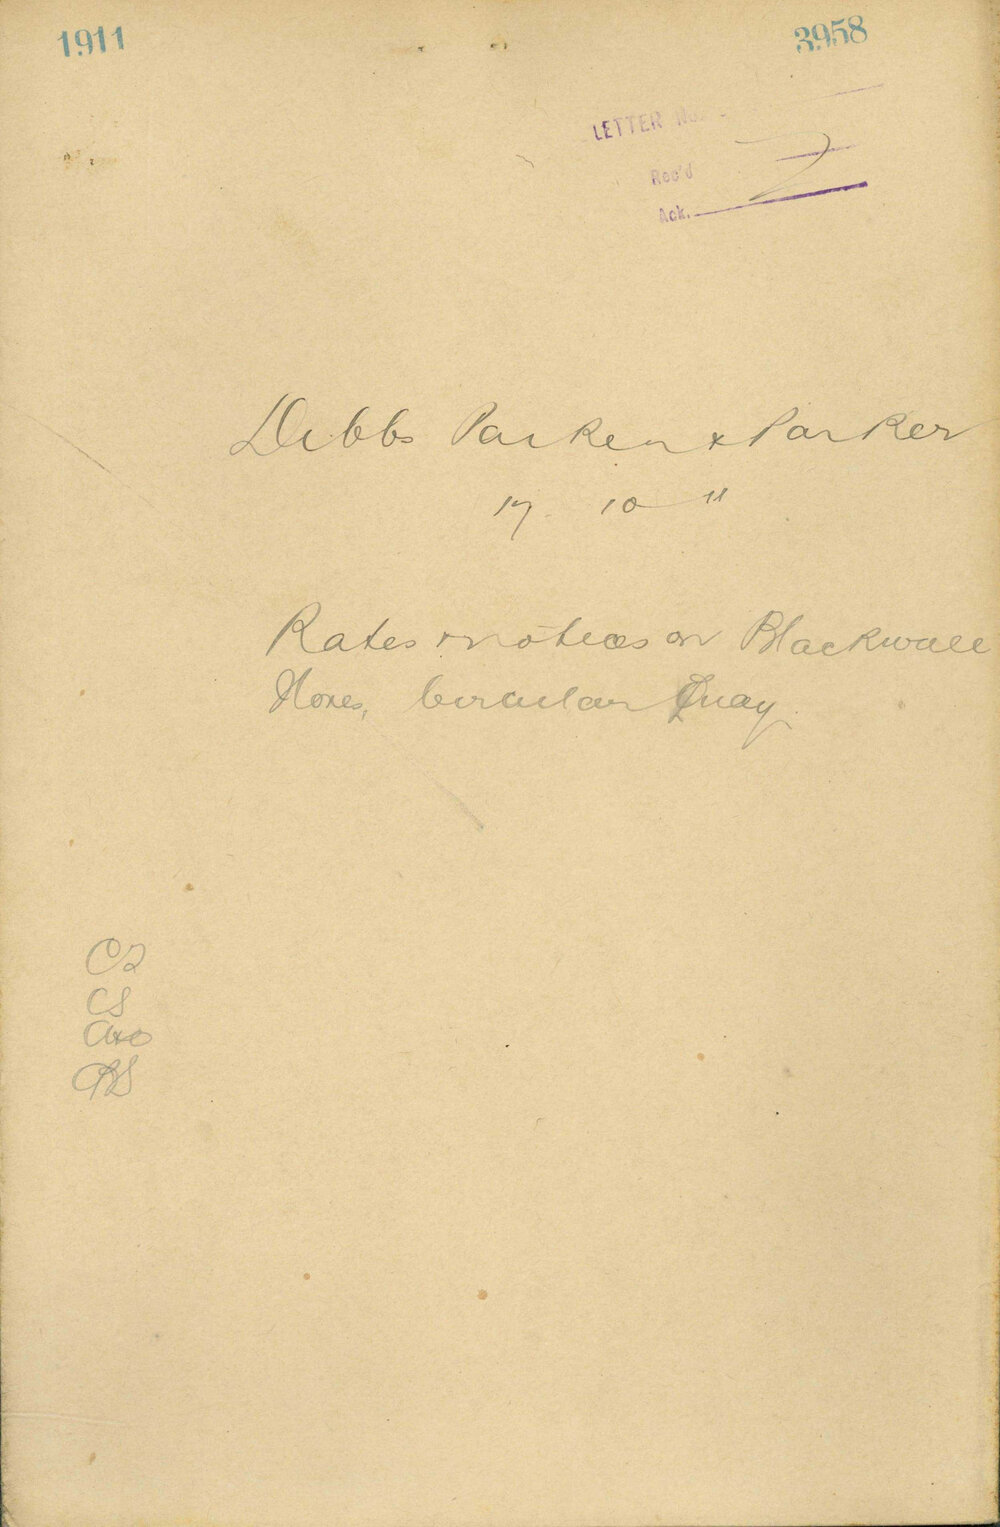 1911 3958
LETTER No.
Rec'd
Ack.
Dibbs Parker & Parker
17. 10 11
Rates notices on Blackwall
Stores, Circular Quay.
CS